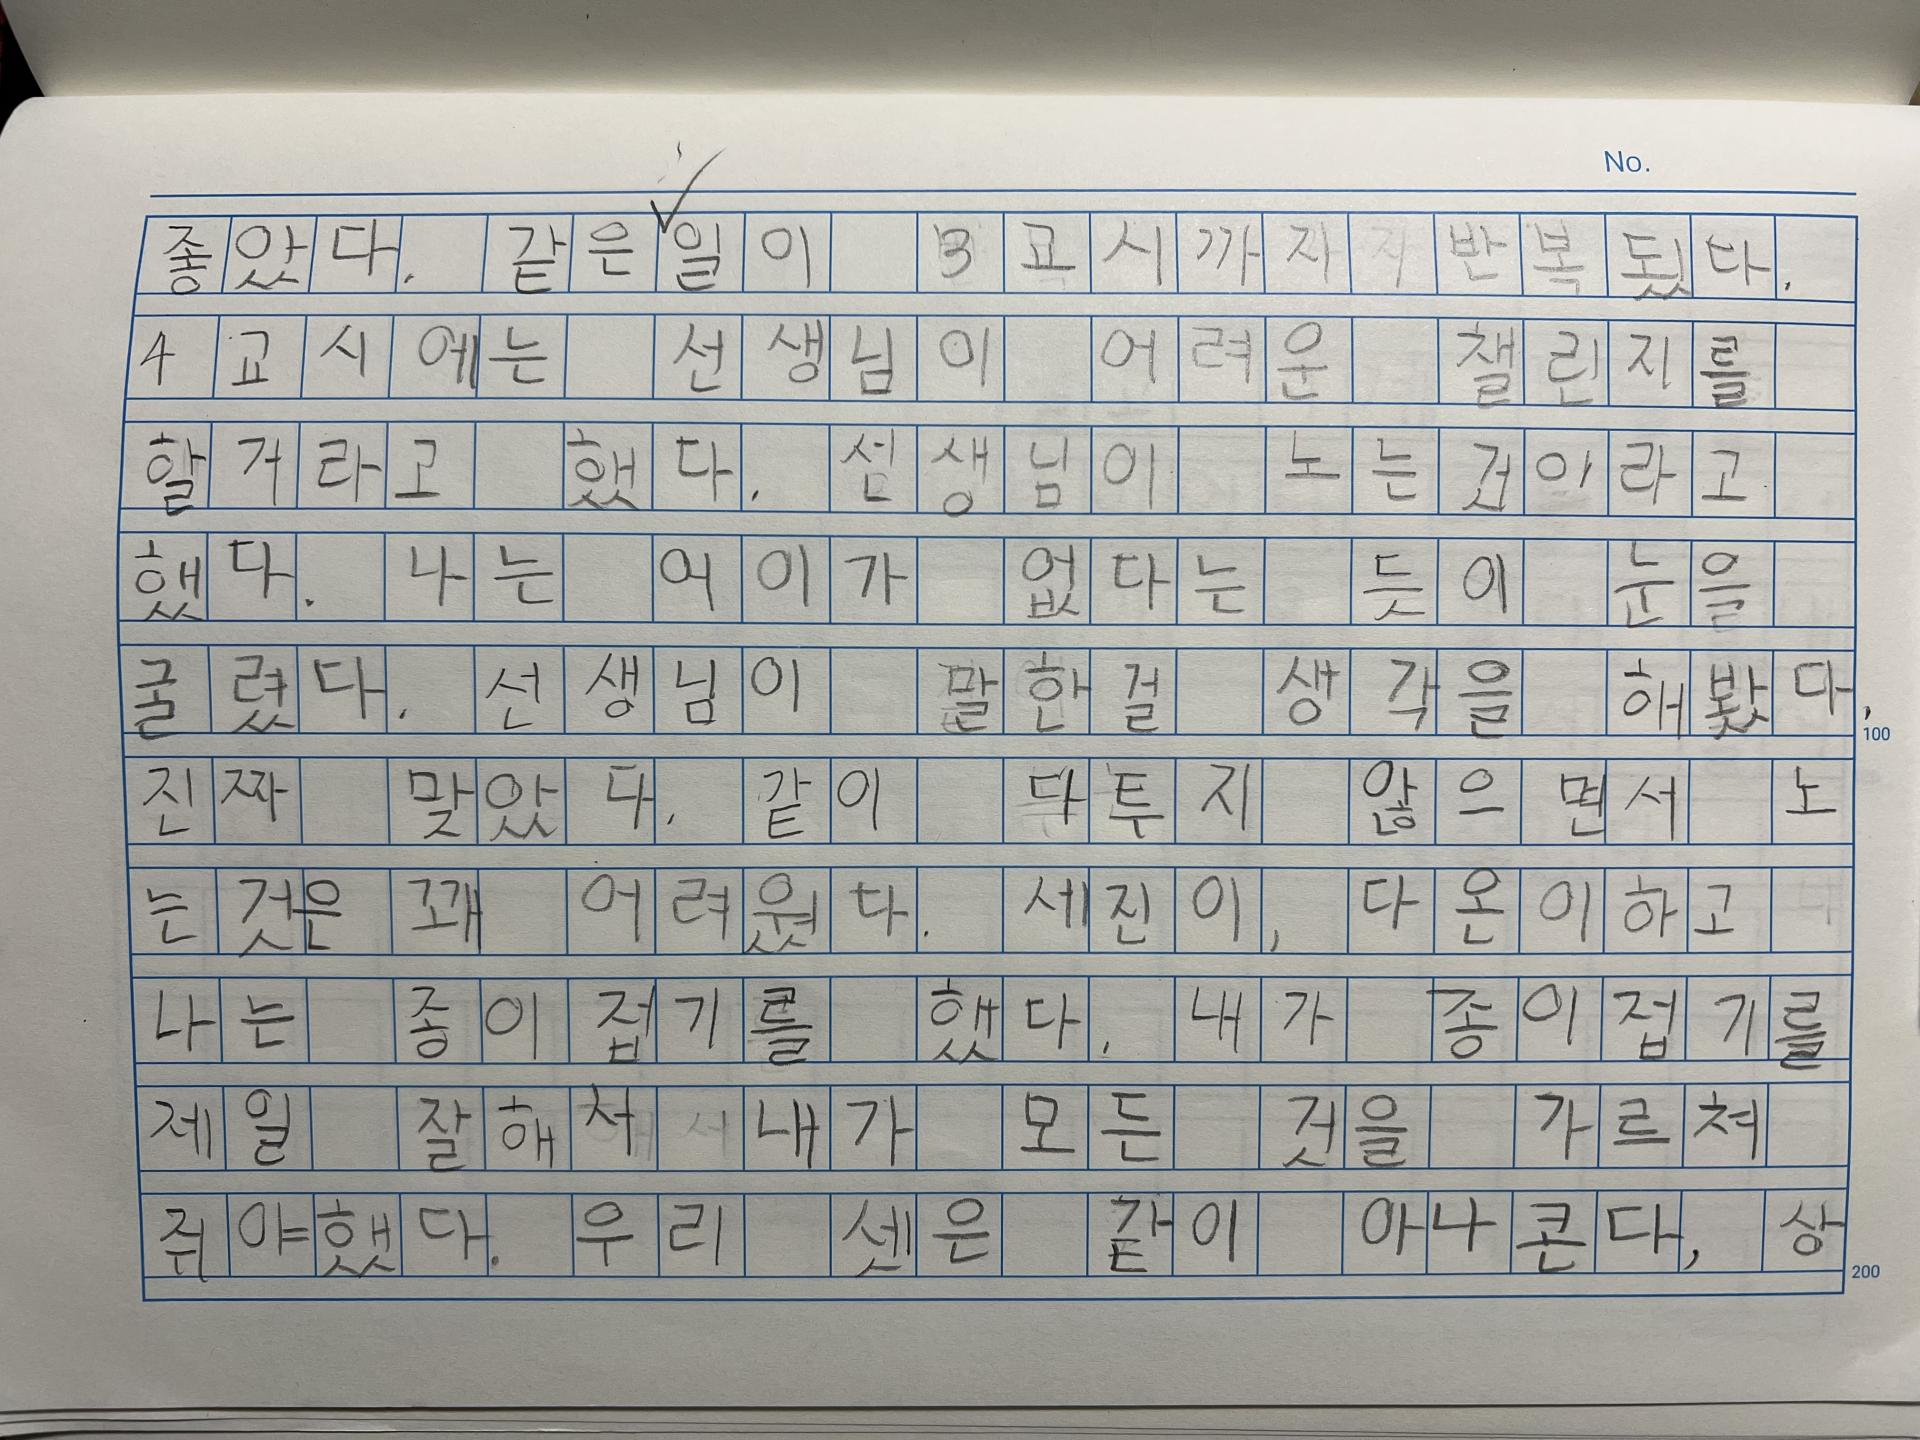 No.
좋았다. 같은 일이 3교시까지 반복됬다.
4교시에는 선생님이 어려운 챌린지를
할거라고 했다. 섬생님이 노는 것이라고
했다. 나는 어이가 없다는 듯이 눈을
굴렸다. 선생님이 말한걸 생각을 해봤다.
진짜 맞았다. 같이 다투지 않으면서 노
는 것은 꽤 어려웠다. 세진이, 다온이하고
나는 종이접기를 했다. 내가 종이접기를
제일 잘해서 내가 모든 것을 가르쳐
줘야했다. 우리 셋은 같이 아나콘다, 상
100
200